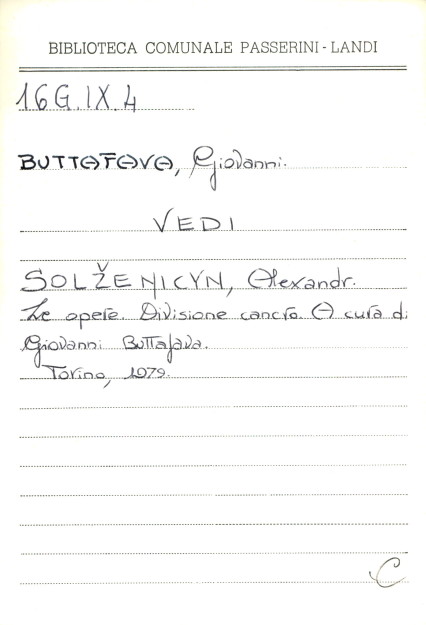 BIBLIOTECA COMUNALE PASSERINI - LANDI
16G.IX.4
BUTTAFAVA, Giovanni.
VEDI
SOLŽENICYN, Alexandr.
Le opere. Divisione cancro. A cura di
Giovanni Buttafava.
Torino, 1979.
C